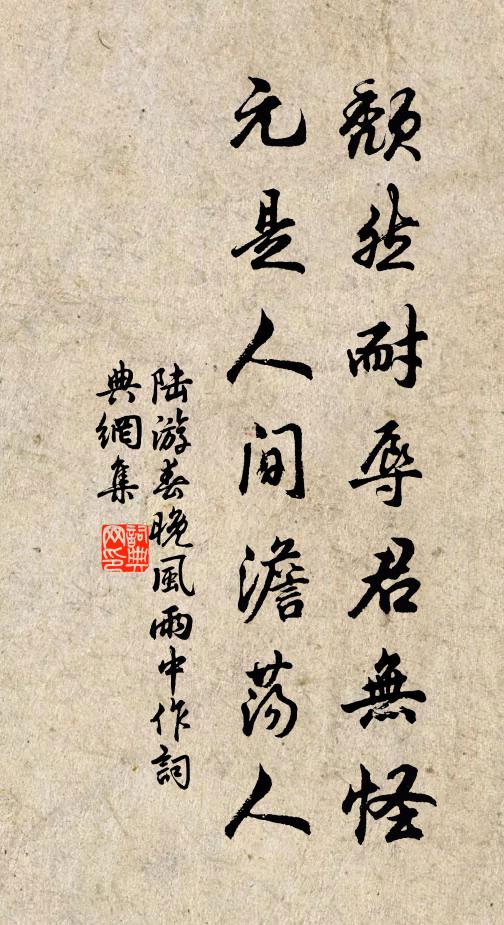 頹然耐辱君無怪
元是人間澹蕩人
陸游春晚風雨中作詞
典網集
詞典
网印